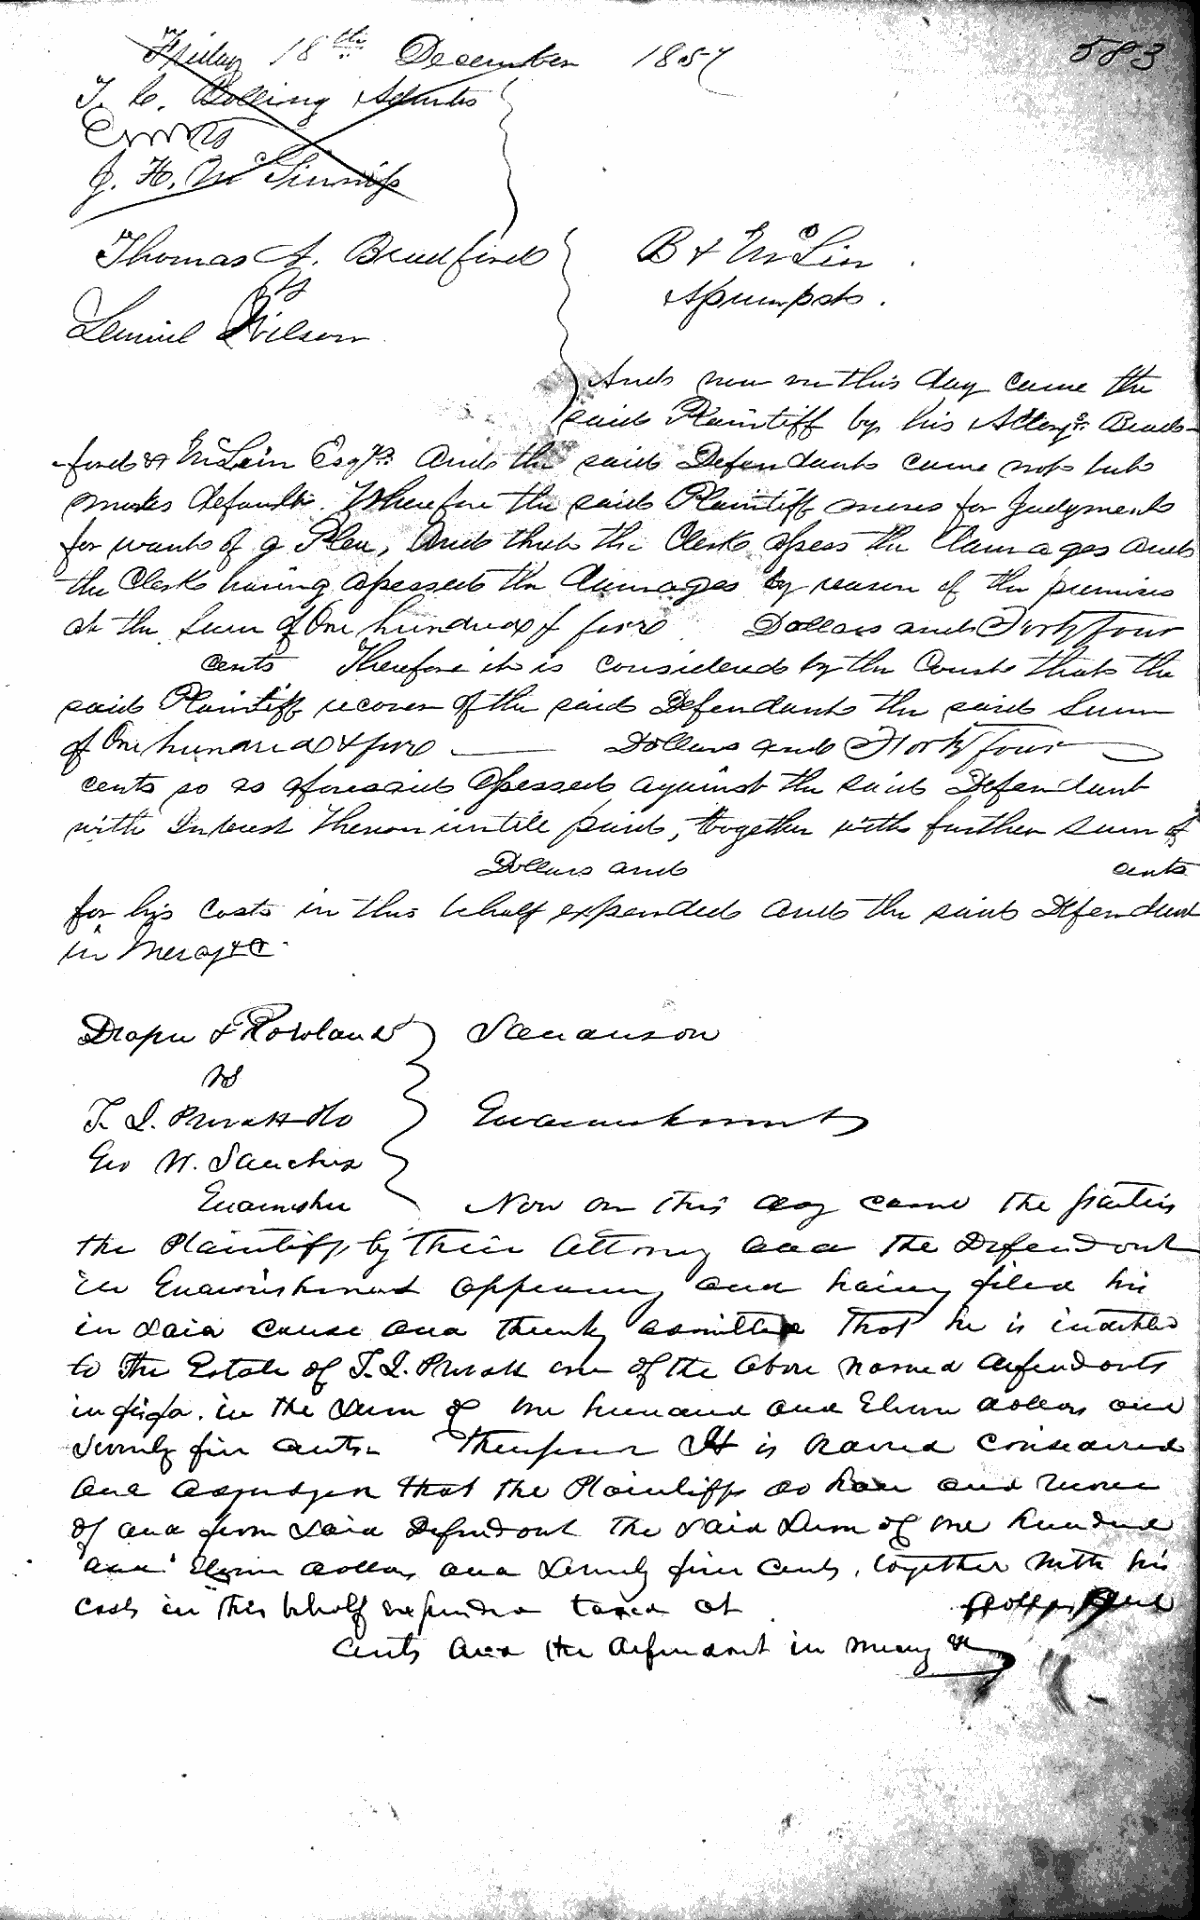 583
Friday 18th December 1857
T. C. Bolling Admr
vs
J. H. McGinniss
Thomas A. Bradford
vs
Lemuel Wilson
B & McLin
Assumpsit.
And now on this day came the
said Plaintiff by his Attoys Brad-
-ford & McLin Esqrs And the said Defendant came not but
makes default. Wherefore the said Plaintiff moves for Judgment
for want of a Plea, And that the Clerk assess the damages and
the Clerk having assessed the damages by reason of the premises
at the Sum of One hundred & five Dollars and Forty four
cents Therefore it is considered by the Court that the
said Plaintiff recover of the said Defendant the said Sum
of One hundred & five Dollars and Forty four
cents so as aforesaid assessed against the said Defendant
with Interest thereon untill paid, together with further Sum of
Dollars and cents
for his costs in this behalf expended and the said Defendant
in Mercy &c.
Draper & Rowland Sanderson
vs
T. I. Prevatt
Geo W. Sanchez Garnishment
Garnishee Now on this day came the parties
the Plaintiffs by their Attorney and the Defendant
in Garnishment appearing and having filed his
in said cause and thereby admitted that he is indebted
to the Estate of T. I. Prevatt one of the above named defendants
in fi fa. in the Sum of one hundred and Eleven dollars and
Seventy five cents. Therefore It is considered
and adjudged that the Plaintiffs do have and recover
of and from said Defendant the said Sum of one hundred
and Eleven dollars and Seventy five Cents, together with his
costs in this behalf expended taxed at dollars and
cents and the defendant in mercy &c